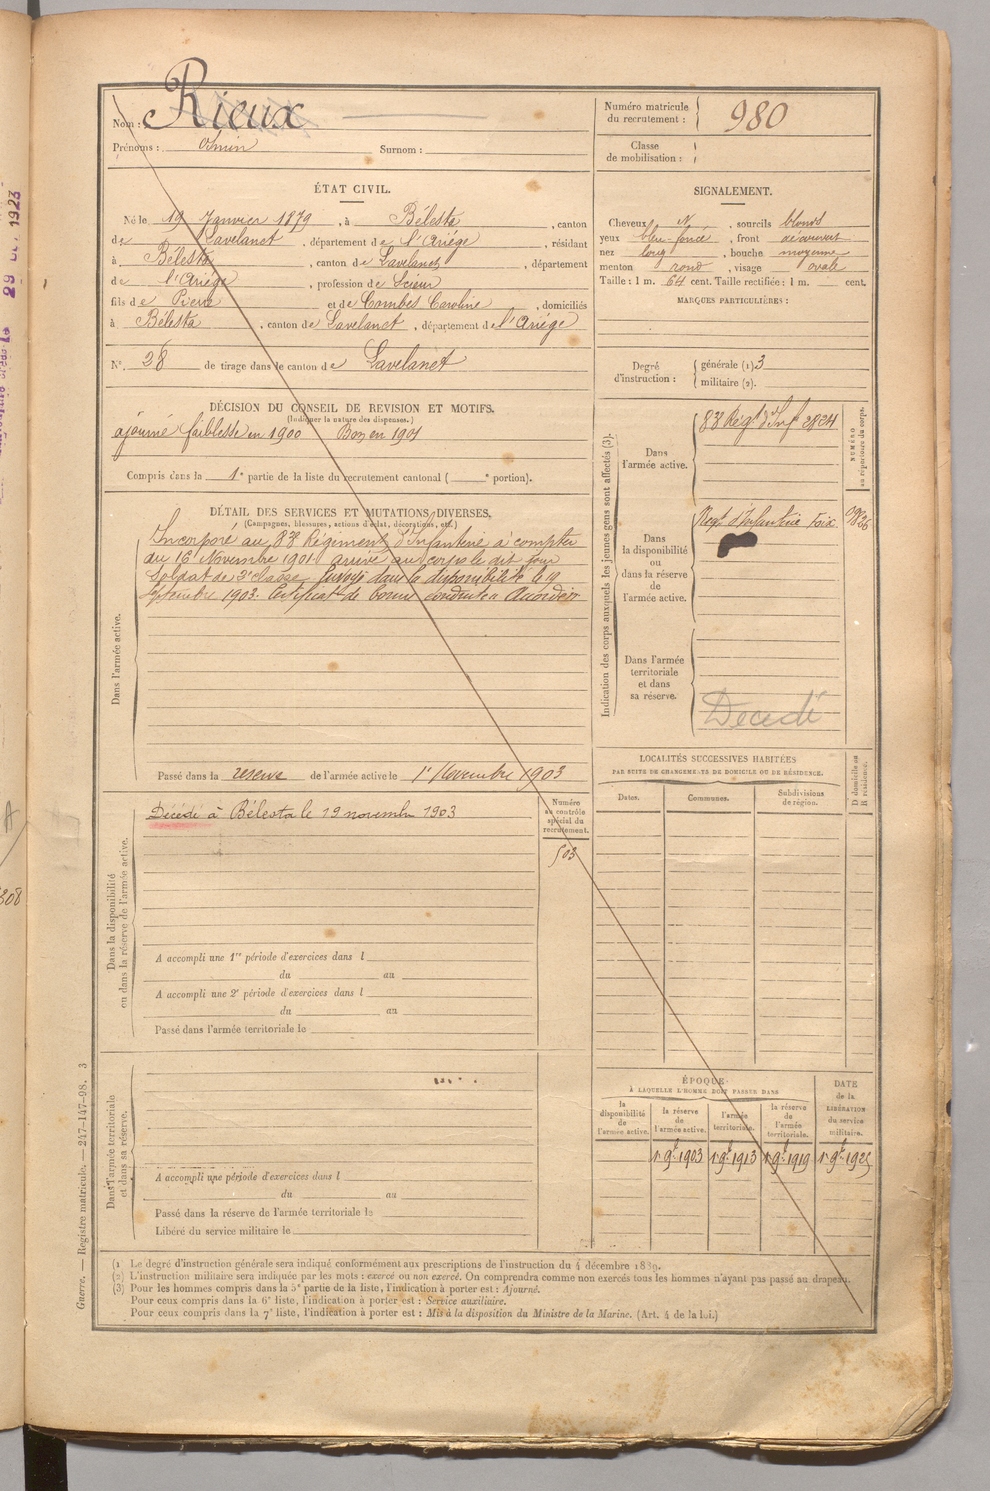 Nom : Rieux
Prénoms : Surnom :
Numéro matricule du recrutement : 980
Classe de mobilisation :
ÉTAT CIVIL.
Né le 19 Janvier 1879, à Bélesta, canton
de Lavelanet, département de l'Ariége, résidant
à Bélesta, canton de Lavelanet, département
de l'Ariége, profession de Scieur
fils de Pierre et de Combes Caroline, domiciliés
à Bélesta, canton de Lavelanet, département de l'Ariége
N° 28 de tirage dans le canton de Lavelanet
SIGNALEMENT.
Cheveux N, sourcils blonds
yeux bleu-foncé, front découvert
nez long, bouche moyenne
menton rond, visage ovale
Taille : 1 m. 64 cent. Taille rectifiée : 1 m. cent.
MARQUES PARTICULIÈRES :
Degré d'instruction : générale (1) 3
militaire (2).
DÉCISION DU CONSEIL DE REVISION ET MOTIFS.
(Indiquer la nature des dispenses.)
ajourné faiblesse en 1900 Bon en 1901
Compris dans la 1e partie de la liste du recrutement cantonal ( e portion).
DÉTAIL DES SERVICES ET MUTATIONS DIVERSES.
(Campagnes, blessures, actions d'éclat, décorations, etc.)
Dans l'armée active.
Incorporé au 83e Régiment d'Infanterie à compter
du 16 Novembre 1901 arrivé au corps le dit jour
Soldat de 2e classe. Envoyé dans la disponibilité le 19
Septembre 1903. Certificat de bonne conduite Accordé
Passé dans la réserve de l'armée active le 1er Novembre 1903
Dans la disponibilité ou dans la réserve de l'armée active.
Numéro au contrôle spécial du recrutement.
Décédé à Bélesta le 19 novembre 1903
503
A accompli une 1re période d'exercices dans l
du au
A accompli une 2e période d'exercices dans l
du au
Passé dans l'armée territoriale le
Dans l'armée territoriale et dans sa réserve.
A accompli une période d'exercices dans l
du au
Passé dans la réserve de l'armée territoriale le
Libéré du service militaire le
Indication des corps auxquels les jeunes gens sont affectés (3).
NUMÉRO au répertoire du corps.
Dans l'armée active.
83e Régt d'Inf 2824
Dans la disponibilité ou dans la réserve de l'armée active.
Régt d'Infanterie Foix
Dans l'armée territoriale et dans sa réserve.
Decedé
LOCALITÉS SUCCESSIVES HABITÉES
PAR SUITE DE CHANGEMENTS DE DOMICILE OU DE RÉSIDENCE.
D domicile ou R résidence.
Dates. Communes. Subdivisions de région.
ÉPOQUE
À LAQUELLE L'HOMME DOIT PASSER DANS
DATE de la LIBÉRATION du service militaire.
la disponibilité de l'armée active.
la réserve de l'armée active.
l'armée territoriale.
la réserve de l'armée territoriale.
1er 9bre 1903 1er 9bre 1913 1er 9bre 1919 1er 9bre 1925
(1 Le degré d'instruction générale sera indiqué conformément aux prescriptions de l'instruction du 4 décembre 1889.
(2) L'instruction militaire sera indiquée par les mots : exercé ou non exercé. On comprendra comme non exercés tous les hommes n'ayant pas passé au drapeau.
(3) Pour les hommes compris dans la 5e partie de la liste, l'indication à porter est : Ajourné.
Pour ceux compris dans la 6e liste, l'indication à porter est : Service auxiliaire.
Pour ceux compris dans la 7e liste, l'indication à porter est : Mis à la disposition du Ministre de la Marine. (Art. 4 de la loi.)
Guerre. — Registre matricule. — 247-147-98. 3
1923